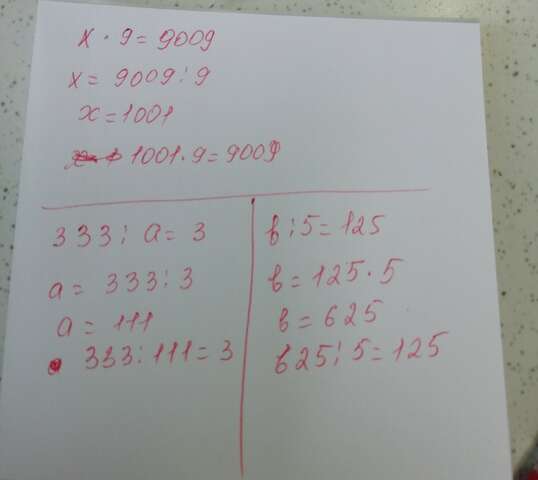 x · 9 = 9009
x = 9009 : 9
x = 1001
1001 · 9 = 9009
333 : a = 3
a = 333 : 3
a = 111
333 : 111 = 3
b : 5 = 125
b = 125 · 5
b = 625
625 : 5 = 125